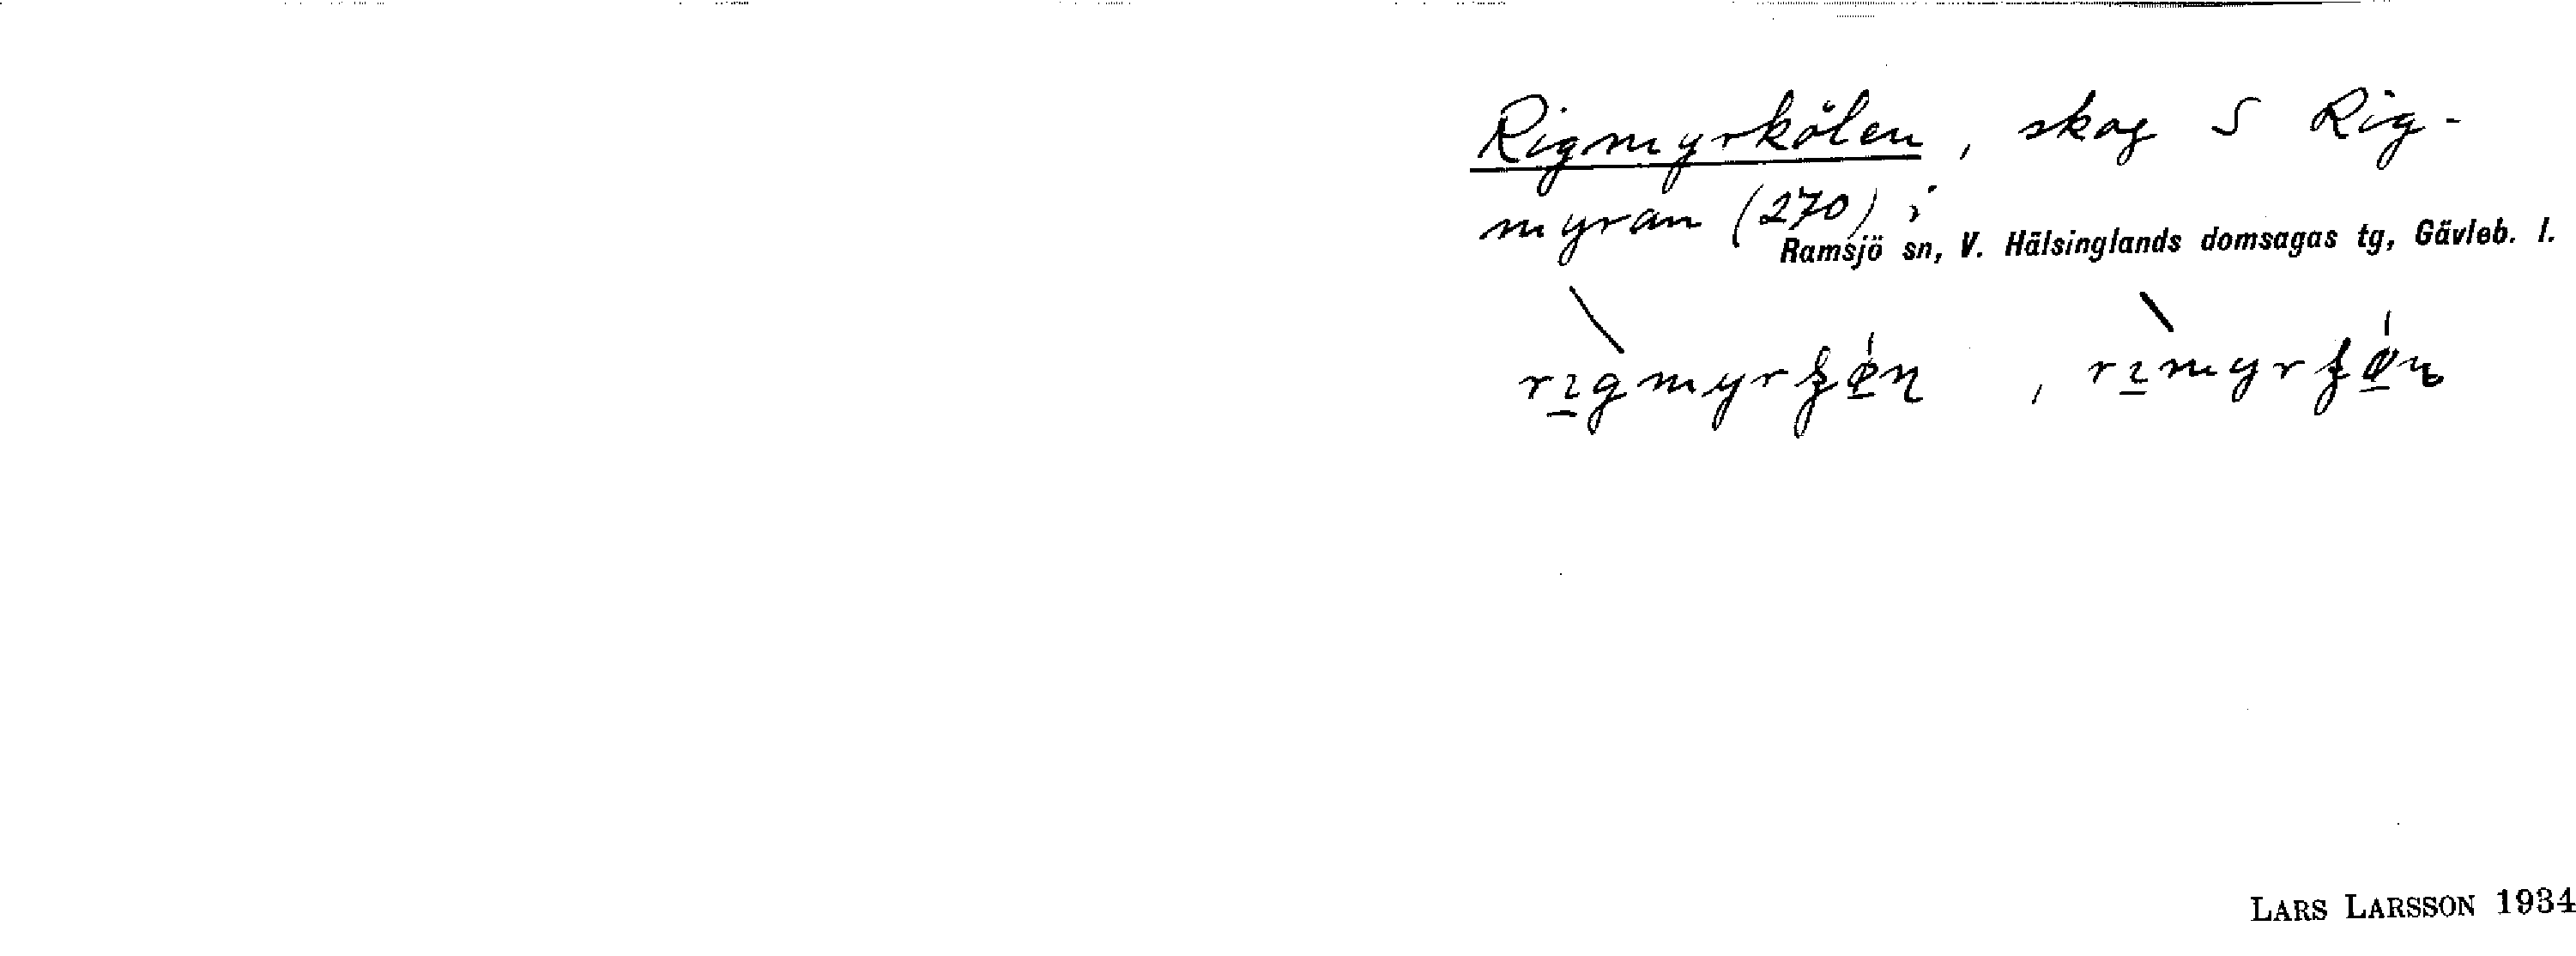 Rigmyrkölen, skog S Rig-
myran (270) i
Ramsjö sn, V. Hälsinglands domsagas tg, Gävleb. l.
LARS LARSSON 1934